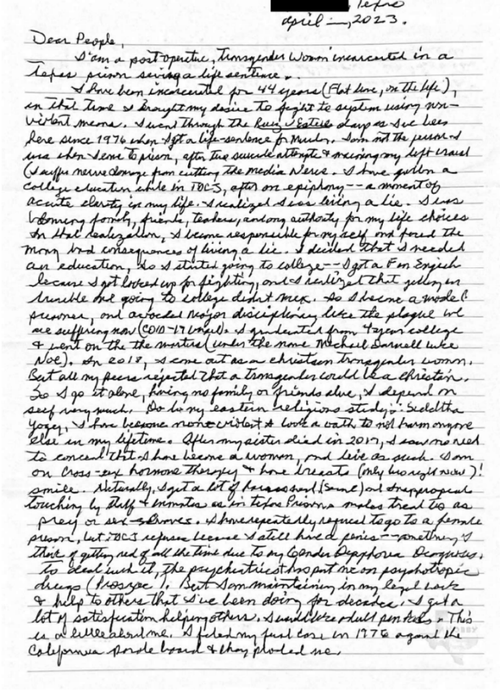 Texas
april —, 2023.
Dear People,
I am a post operative, transgender woman incarcerated in a
Texas prison serving a life sentence.
I have been incarcerated for 44 years (Flat time, on the life),
in that time I brought my desire to fight to system using non-
violent means. I went through the Ruiz v Estelle days as I've been
here since 1976 when I got a life-sentence for Murder. I am not the person I
was when I came to prison, after two suicide attempts & maiming my left wrist
(I suffer nerve damage from cutting the Media Nerve. I have gotten a
college education while in TDCS, after an epiphany -- a moment of
acute clarity in my life. I realized I was living a lie. I was
blaming family, friends, teachers, and any authority for my life choices
In that realization, I became responsible for my self and faced the
many bad consequences of living a lie. I decided that I needed
an education, so I started going to college -- I got a F in English
because I got locked up for fighting, and I realized that getting in
trouble and going to college didn't mix. So I became a model
prisoner, and avoided major disciplinary like the plague we
are suffering now (COVID-19). I graduated from college
& went on the the masters (under the name Michael Darnell
NOE). In 2018, I came out as a christian transgender woman.
But all my peers rejected that a transgender could be a christian.
So I go it alone, having no family or friends alive, I depend on
self very much. Do to my eastern religions study: Siddhtha
Yoga, I have become nonviolent & took a oath to not harm anyone
else in my lifetime. After my sister died in 2017, I saw no need
to conceal that I have become a woman, and live as such. I am
on Cross-sex hormone therapy & have breasts (only two right now)!
smile. Naturally, I get a lot of harassment (Sexual) and inappropriate
touching by staff & inmates as in Texas Prison, males treat us as
prey or sex-slaves. I have repeatedly request to go to a female
prison, but TDCS refuses because I still have a penis -- something I
think of getting rid of all the time due to my Gender Dysphoria Diagnosis.
to deal with it, the psychiatrist has put me on psychotropic
drugs (Prozac). But I am maintaining in my legal work
& help to others that I've been doing for decades. I get a
lot of satisfaction helping others. I would like adult pen pals. This
is a little about me. I filed my first case in 1976 against the
California parole board & they paroled me.